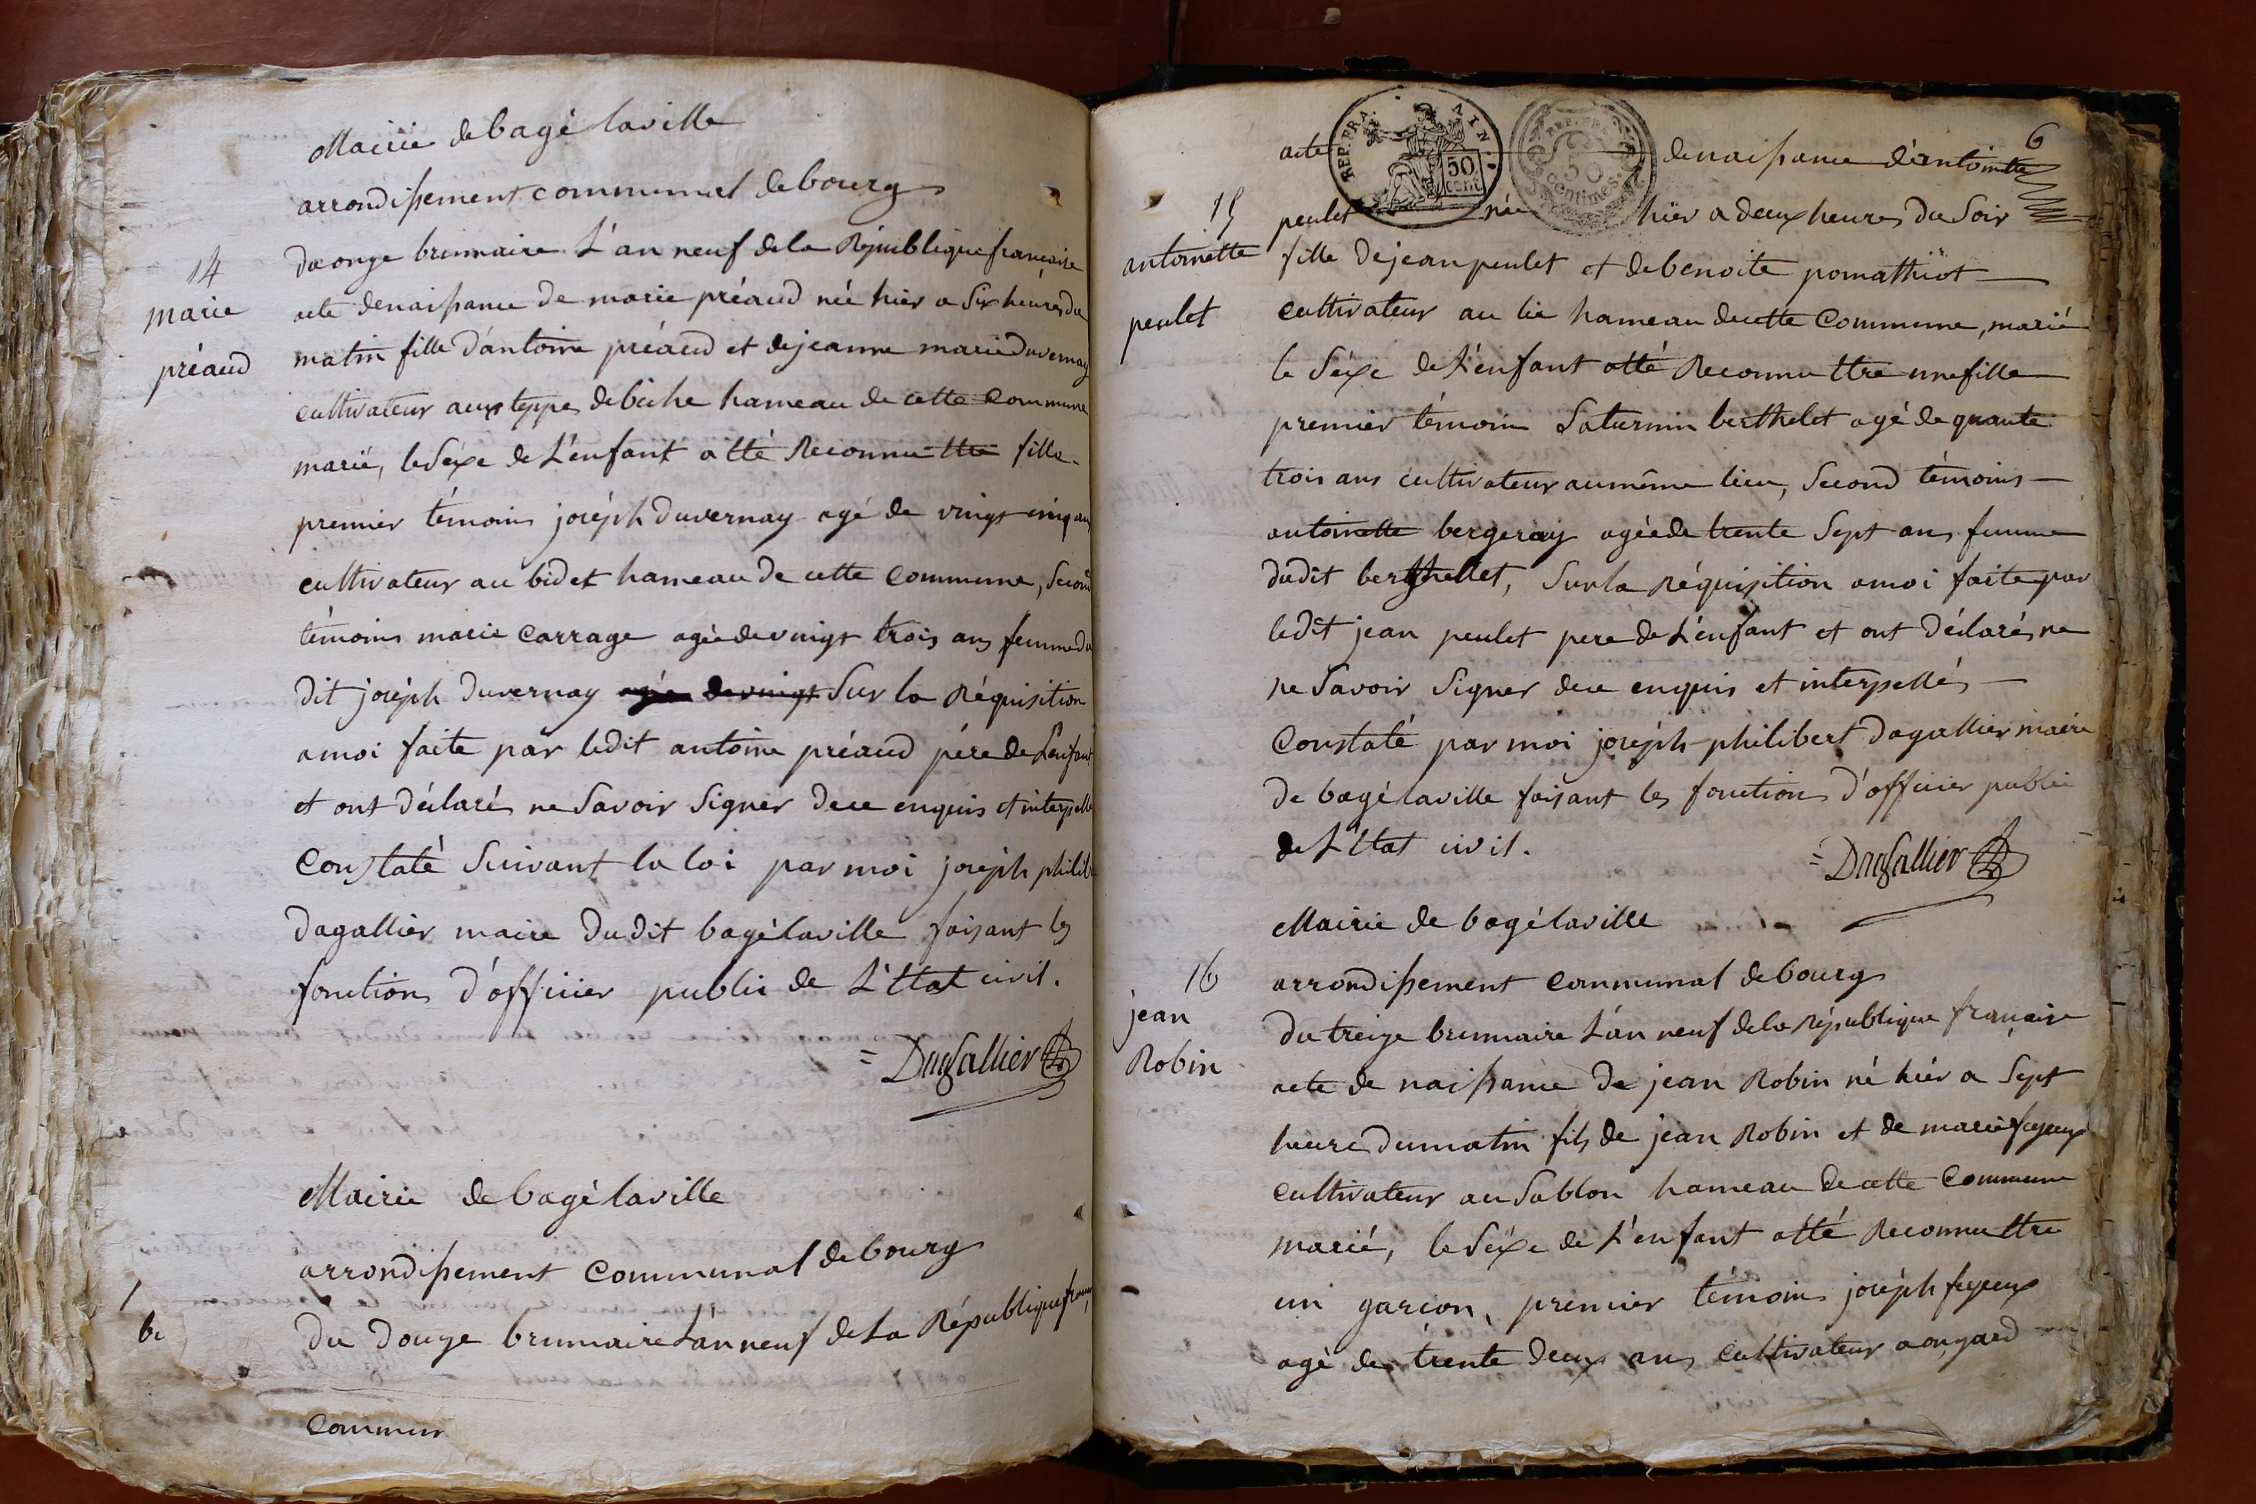 Mairie de bagé laville
arrondissement communal de bourg
14
du onze brumaire L'an neuf de la République francaise
marie
acte de naissance de marie préaud née hier a Six heures du
préaud
matin fille d'antoine préaud et de jeanne marie Duvernay
cultivateur aux teppes de biche hameau de cette commune
marié, le Séxe de L'enfant a été Reconnu être fille
premier témoins joséph Duvernay agé de vingt cinq ans
cultivateur au bidet hameau de cette commune, Second
témoins marie Carrage agée de vingt trois ans femme du
dit joséph Duvernay agée de vingt Sur la Réquisition
a moi faite par ledit antoine préaud pére de L'enfant
et ont déclarés ne Savoir Signer de ce enquis et interpellé
Constaté Suivant la loi par moi joséph philib
Dagallier maire Dudit bagélaville faisant les
fonctions d'officier public de L'état civil.
= Dagallier
Mairie de bagé laville
arrondissement Communal de bourg
1
be
du Douze brumaire L'an neuf de La République franç
Commun
6
acte de naissance d'antoinette
REP. FRA. AIN.
50 cent
REP. FRA.
50 centimes
15
peulet née hier a deux heures du Soir
antoinette
fille de jean peulet et de benoite pomathiot
peulet
cultivateur au lie hameau de cette Commune, marié
le Séxe de L'enfant a été Reconnu être une fille
premier témoin Saturnin berthelet agé de quante
trois ans cultivateur au même lieu, Second témoins
antoinette bergeray agée de trente Sept ans femme
dudit berthellet, Sur la Réquisition a moi faite par
ledit jean peulet pere de L'enfant et ont déclarés ne
ne Savoir Signer de ce enquis et interpellés
Constaté par moi joséph philibert Dagallier maire
de bagé laville faisant les fonctions d'officier public
de L'état civil.
= Dagallier
Mairie de bagélaville
16
arrondissement Communal de bourg
jean
du treize brumaire L'an neuf de la République francaise
Robin
acte de naissance de jean Robin né hiér a Sept
heure du matin fils de jean Robin et de marie feyeux
cultivateur au Sablon hameau de cette Commune
marié, le Séxe de L'enfant a été Reconnu être
un garcon, premier témoins joséph feyeux
agé de trente deux ans cultivateur a